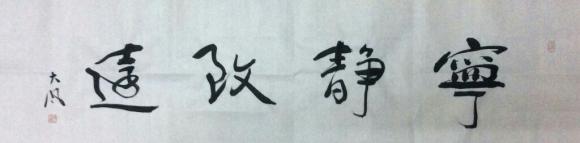 寧靜致遠
大風